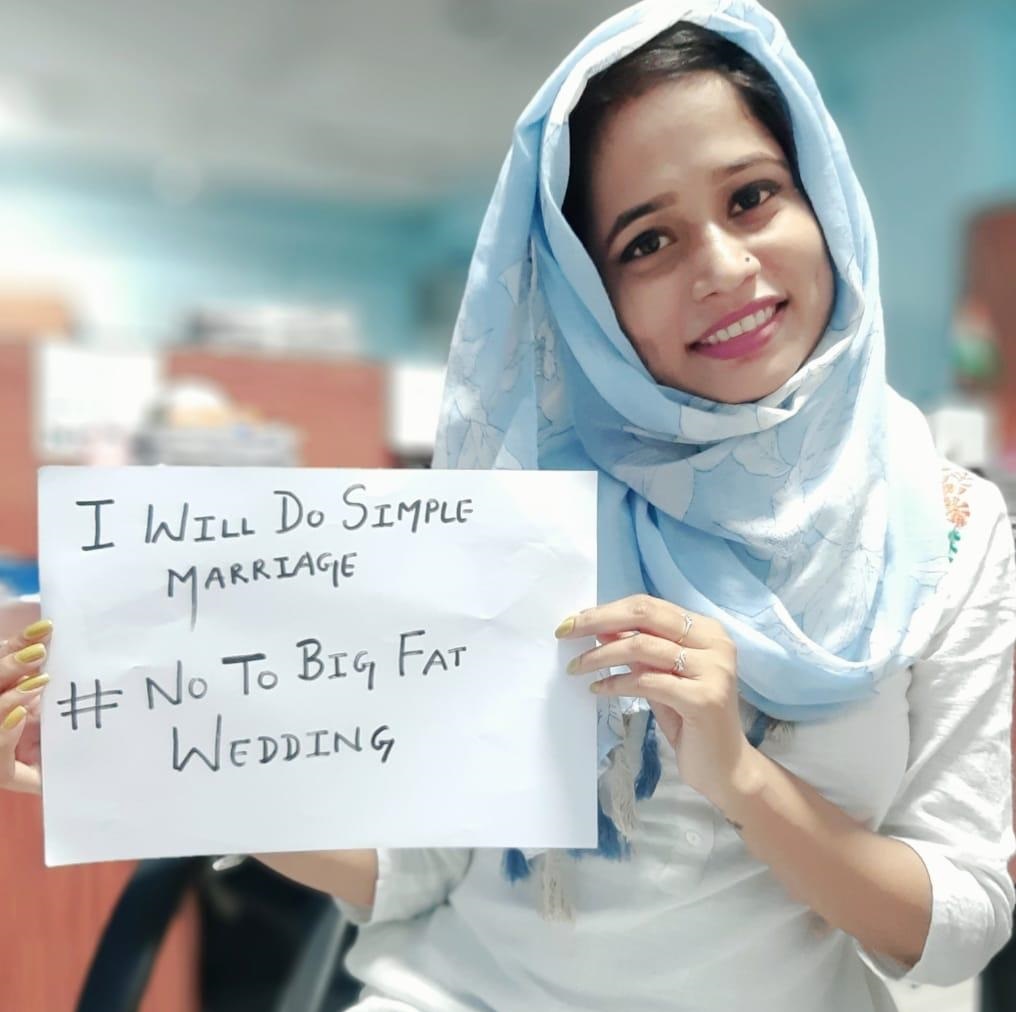 I WILL DO SIMPLE
MARRIAGE
# NO TO BIG FAT
WEDDING